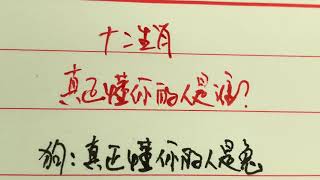 十二生肖
真正懂你的人是谁?
狗:真正懂你的人是兔